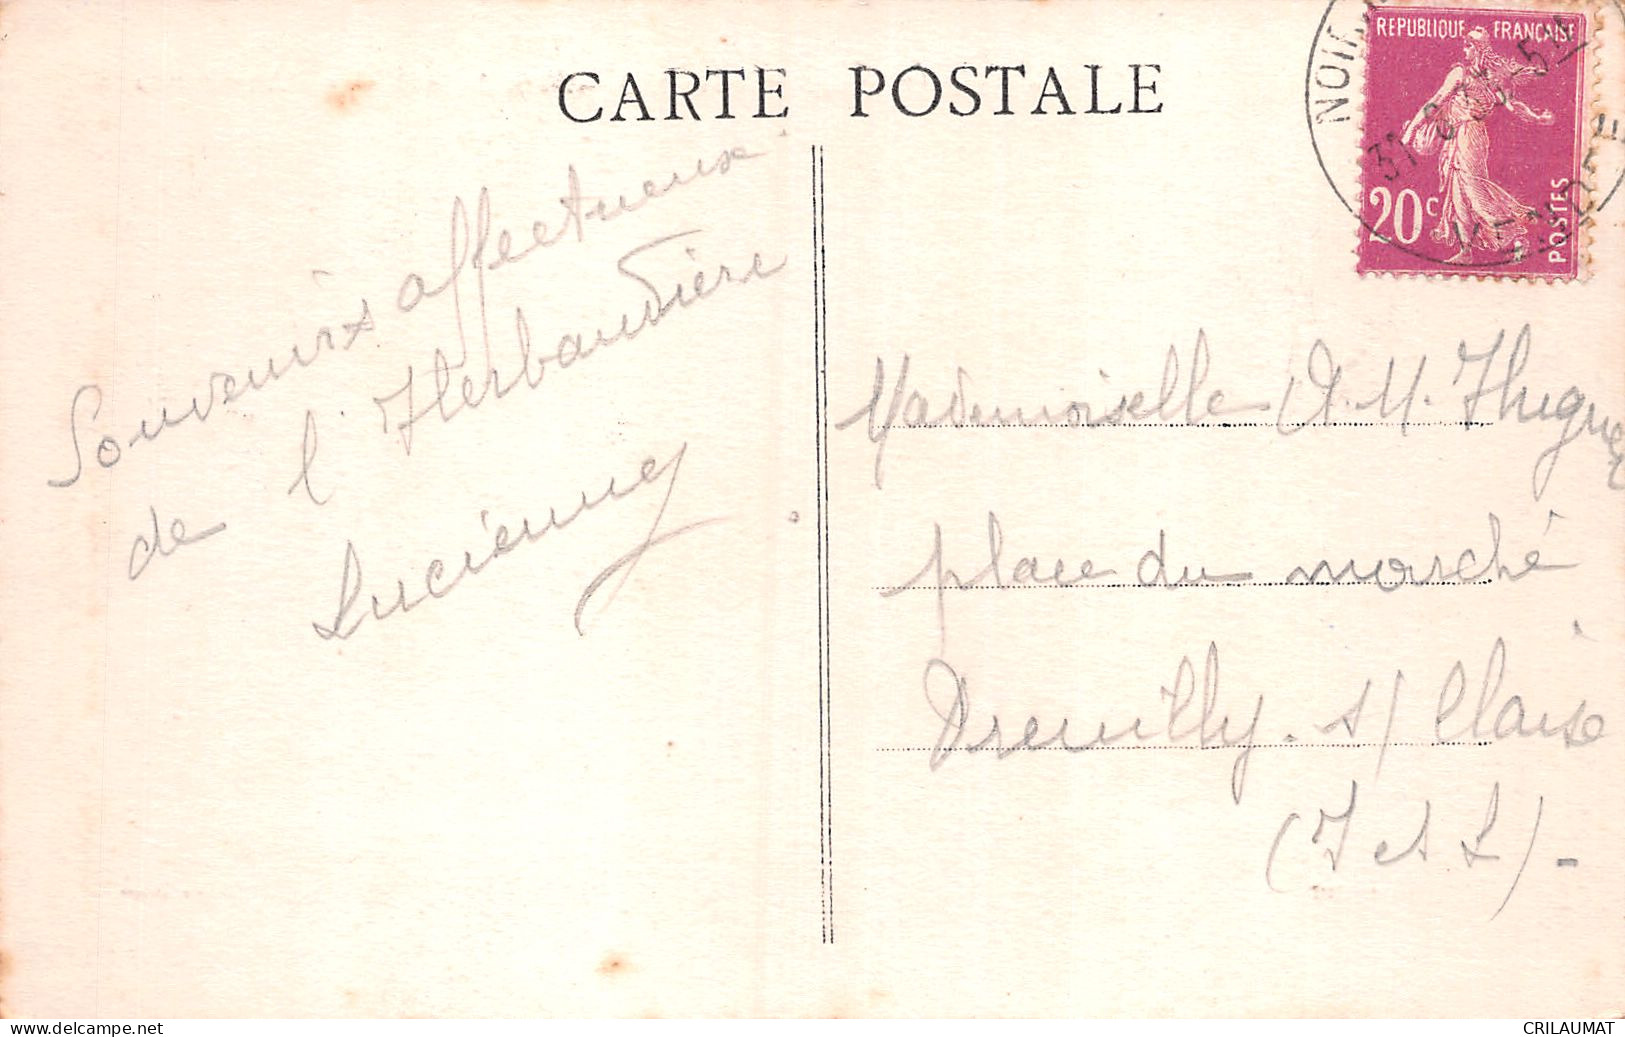 CARTE POSTALE
REPUBLIQUE FRANÇAISE
20c
POSTES
VENDÉE
Souvenirs affectueux
de l'Herbaudière
Lucienne
Mademoiselle A.M.
place du marché
Preuilly. s/ Claise
(I et L) -
www.delcampe.net
CRILAUMAT